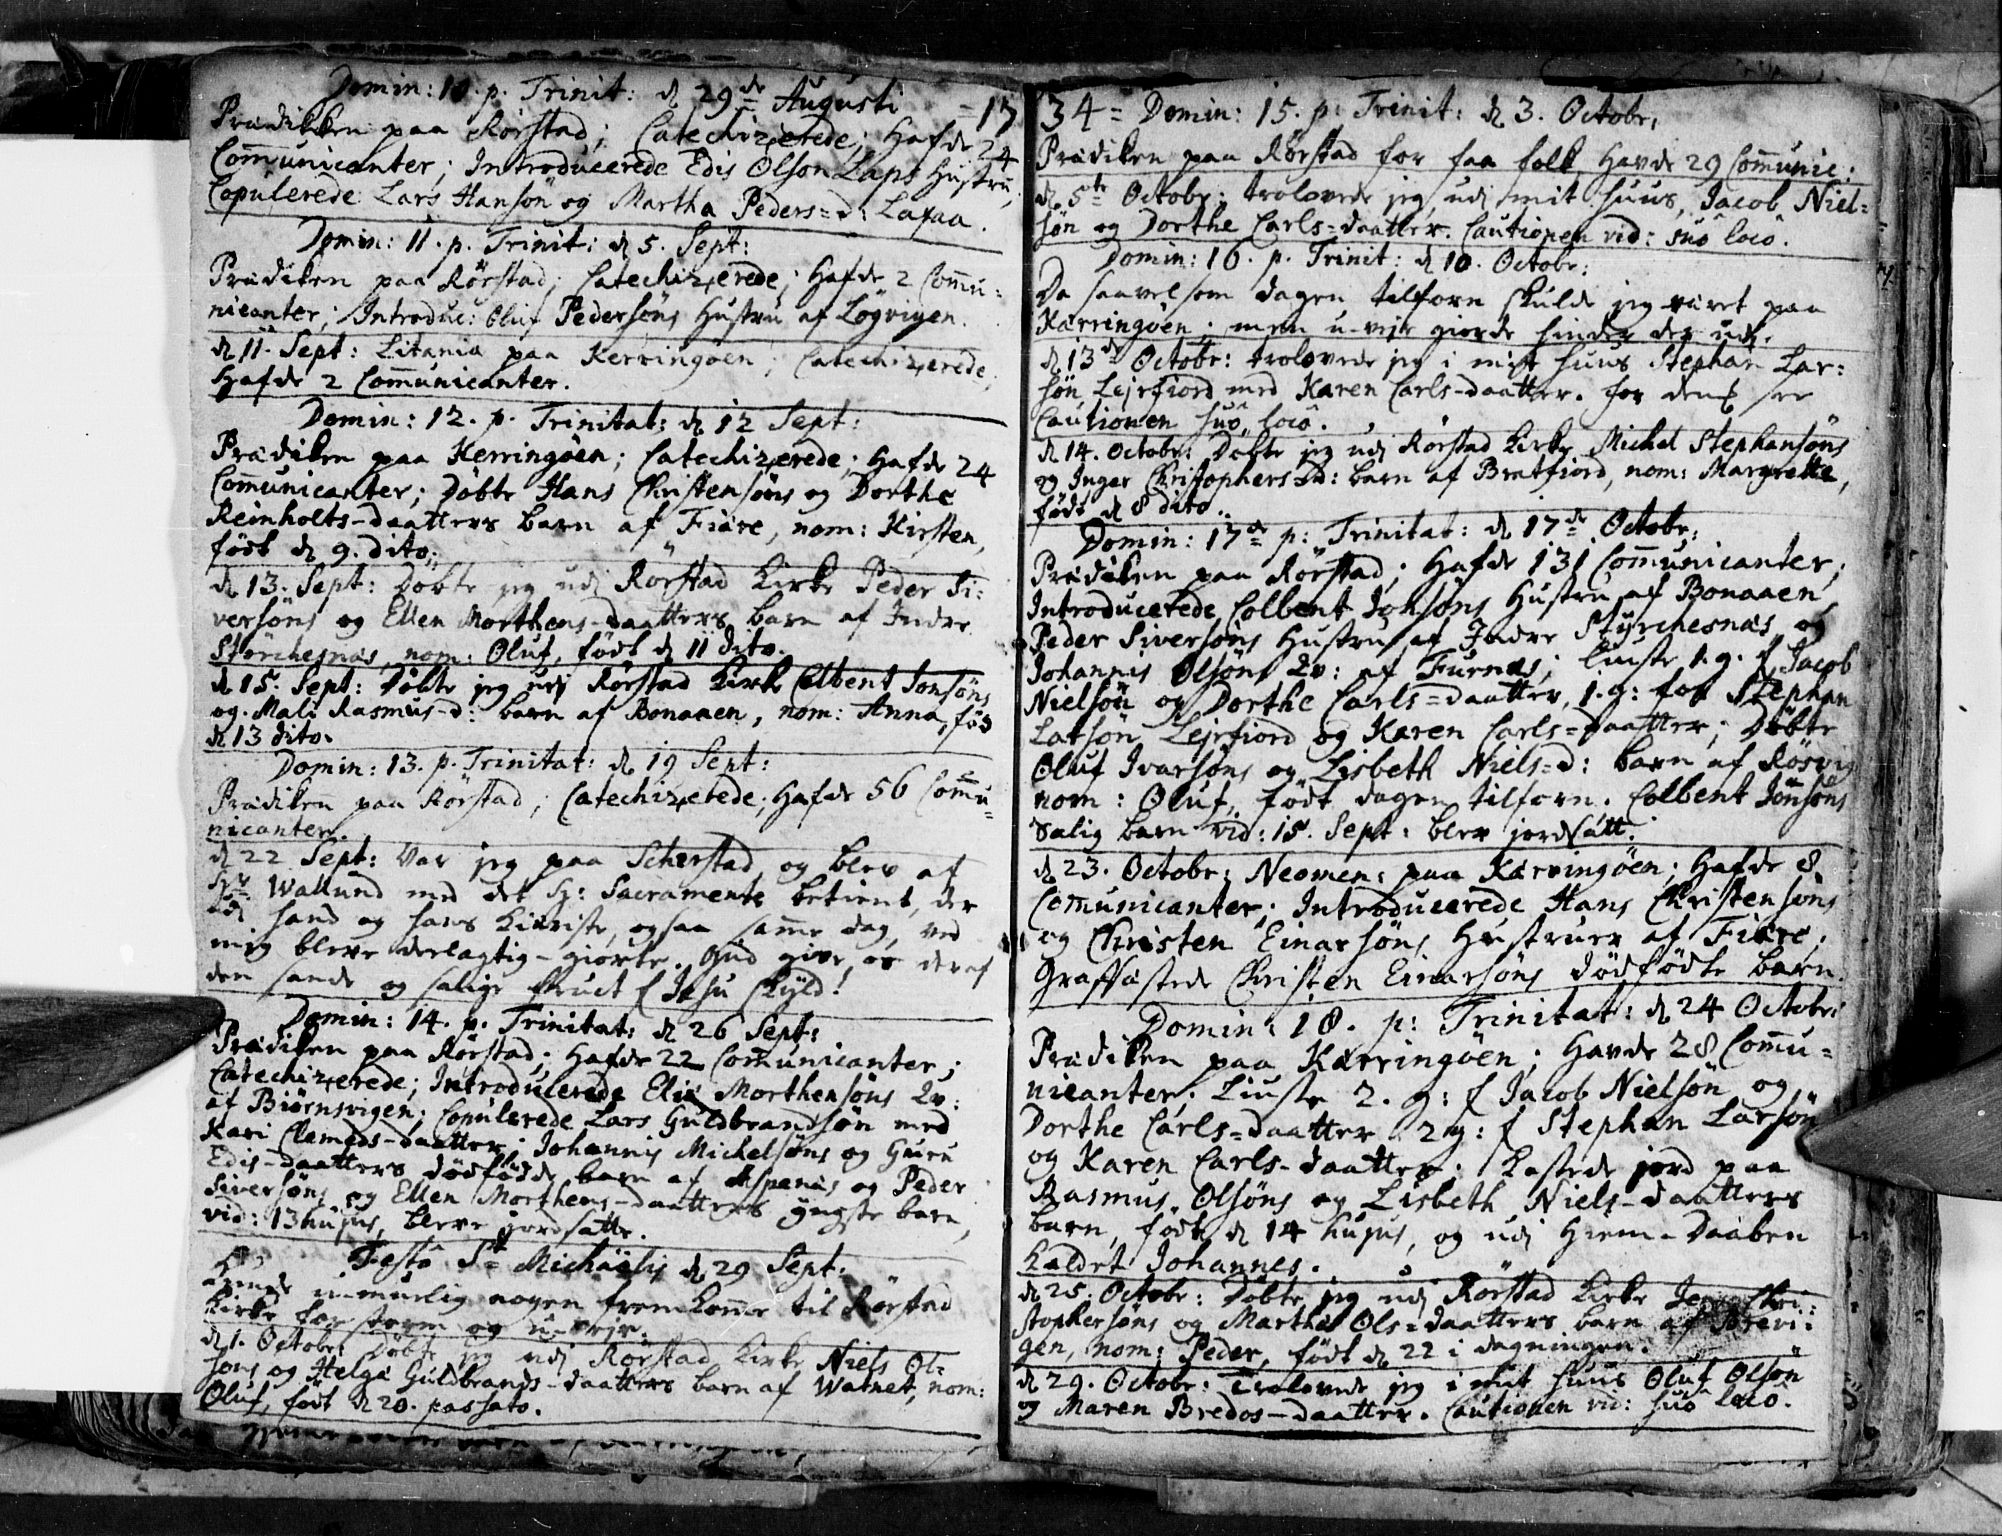 Domin: 10. p. Trinit: d 29de Augusti = 17
Prædiken paa Rørstad; Catechizerede; Hafde 24
Communicanter; Introducerede Edis Olson Laps Hustru,
Copulerede Lars Hansøn og Martha Peders=d: Lafaa.
Domin: 11. p. Trinit: d 5. Sept:
Prædiken paa Rørstad; Catechizerede; Hafde 2 Commu=
nicanter; Introduc: Oluf Pedersøns Hustru af Løgvigen.
d 11. Sept: Litania paa Kerringøen; Catechizerede;
Hafde 2 Communicanter.
Domin: 12. p. Trinitat: d 12 Sept:
Prædiken paa Kerringøen; Catechizerede; Hafde 24
Communicanter; Døbte Hans Christensøns og Dorthe
Reinholts-daatters barn af Fiære, nom: Kirsten,
født d 9. dito.
d 13. Sept: Døbte jeg udj Rørstad Kirke Peder Si=
versøns og Ellen Morthens-daatters barn af Indre
Størchesnæs, nom: Oluf, født d 11 dito.
d 15. Sept: Døbte jeg udj Rørstad Kirke Colbent Jonsøns
og Mali Rasmus-d: barn af Bonaaen, nom: Anna, fød
d 13 dito.
Domin: 13. p. Trinitat: d 19 Sept:
Prædiken paa Rørstad; Catechizerede; Hafde 56 Commu=
nicanter.
d 22 Sept: Var jeg paa Scherstad, og blev af
Hr Wallund med det H: Sacramente betient, der
udj hand og hans Kiæriste, ogsaa samme dag, ved
mig bleve deelagtig-giorte. Gud give os deraf
den sande og salige fruct f Jesu skyld!
Domin: 14. p. Trinitat: d 26 Sept:
Prædiken paa Rørstad; Hafde 22 Communicanter;
Catechizerede; Introducerede Elis Morthensøns Qv:
af Biørnsvigen; Copulerede Lars Guldbrandsøn med
Kari Clameds-daatter; Johannis Michelsøns og Guru
Edis-daatters dødfødde barn af Aspenæs og Peder
Siversøns og Ellen Morthens-daatters yngste barn,
vid: 13 hujus, bleve jordsatte.
Festô St Michaëlis d 29 Sept:
umuelig nogen fremkomme til Rørstad
Kirke for storm og u-vejr.
d 1. Octobr: Døbte jeg udj Rørstad Kirke Niels Ol=
søns og Helge Guldbrands-daatters barn af Watnet, nom:
Oluf, født d 20. passato.
34 = Domin: 15. p. Trinit: d 3. Octobr:
Prædiken paa Rørstad for faa folk, Havde 29 Communic:
d 5te Octobr: trolovede jeg, udi mit huus, Jacob Niel=
søn og Dorthe Carls=daatter. Cautionen vid: suô locô.
Domin: 16. p. Trinit: d 10. Octobr:
Da saavelsom dagen tilforn skulde jeg været paa
Kærringøen; men u-vejr giorde hinder der udi.
d 13de Octobr: trolovede jeg i mit huus Stephan Lar=
søn Lejrfiord med Karen Carls-daatter. for dem see
Cautionen suô locô.
d 14. Octobr: Døbte jeg udj Rørstad Kirke Michel Stephansøns
og Inger Christophers D: barn af Brætfiord, nom: Margrethe,
født d 8 dito.
Domin: 17de p: Trinitat: d 17de Octobr:
Prædiken paa Rørstad; Hafde 131 Communicanter;
Introducerede Colbent Jonsøns Hustru af Bonaaen,
Peder Siversøns Hustru af Indre Styrchesnæs og
Johannis Olsøns Qv: af Furnæs; Liuste 1. g. f Jacob
Nielsøn og Dorthe Carls=daatter, 1. g: for Stephan
Larsøn Lejrfiord og Karen Carls=daatter; Døbte
Oluf Ivarsøns og Lisbeth Niels=d: barn af Røsvig
nom: Oluf, født dagen tilforn. Colbent Jonsøns
Salig barn vid: 15. Sept: blev jordsatt.
d 23. Octobr: Neomen: paa Kærringøen; Hafde 8
Communicanter; Introducerede Hans Christensøns
og Christen Einarsøns Hustruer af Fiære;
Graffæstede Christen Einarsøns dødfødte barn.
Domin: 18. p: Trinitat: d 24 Octobr:
Prædiken paa Kærringøen; Havde 28 Commu=
nicanter; Liuste 2. g: f Jacob Nielsøn og
Dorthe Carls=daatter 2 g: f Stephan Larsøn
og Karen Carls-daatter; Kastede jord paa
Rasmus Olsøns og Lisbeth Niels-daatters
barn, født d 14 hujus, og udj Hiem-Daaben
kaldet Johannes.
d 25. Octobr: Døbte jeg udj Rørstad Kirke Jens Chri:
stophersøns og Marthe Ols=daatters barn af Brevi=
gen, nom: Peder, født d 22 i dagningen.
d 29. Octobr: Trolovede jeg i mit huus Oluf Olsøn
og Maren Bredos-daatter. Cautionen vid: suô locô.